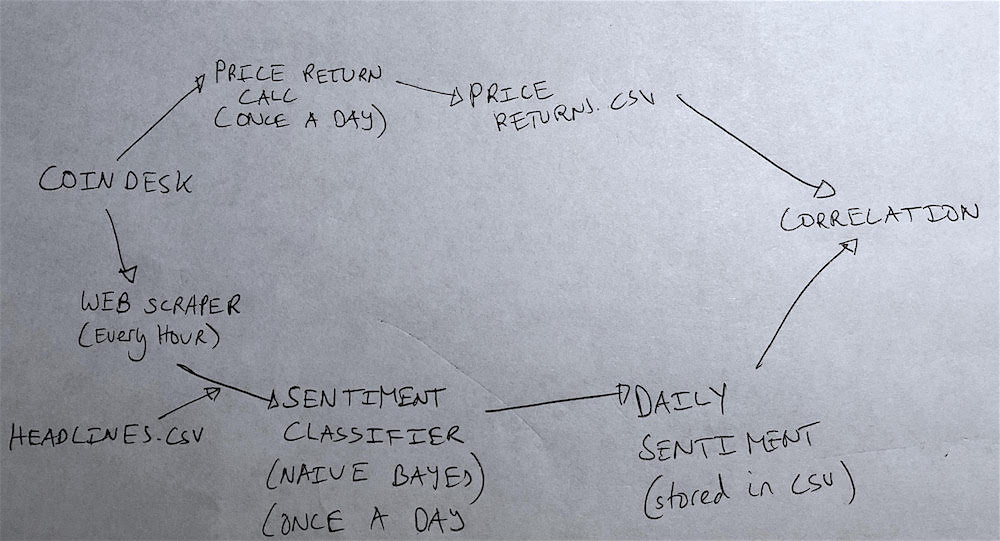 PRICE RETURN
CALC
(ONCE A DAY)
PRICE
RETURNS.CSV
COINDESK
CORRELATION
WEB SCRAPER
(Every HOUR)
HEADLINES.CSV
SENTIMENT
CLASSIFIER
(NAIVE BAYES)
(ONCE A DAY
DAILY
SENTIMENT
(stored in CSV)